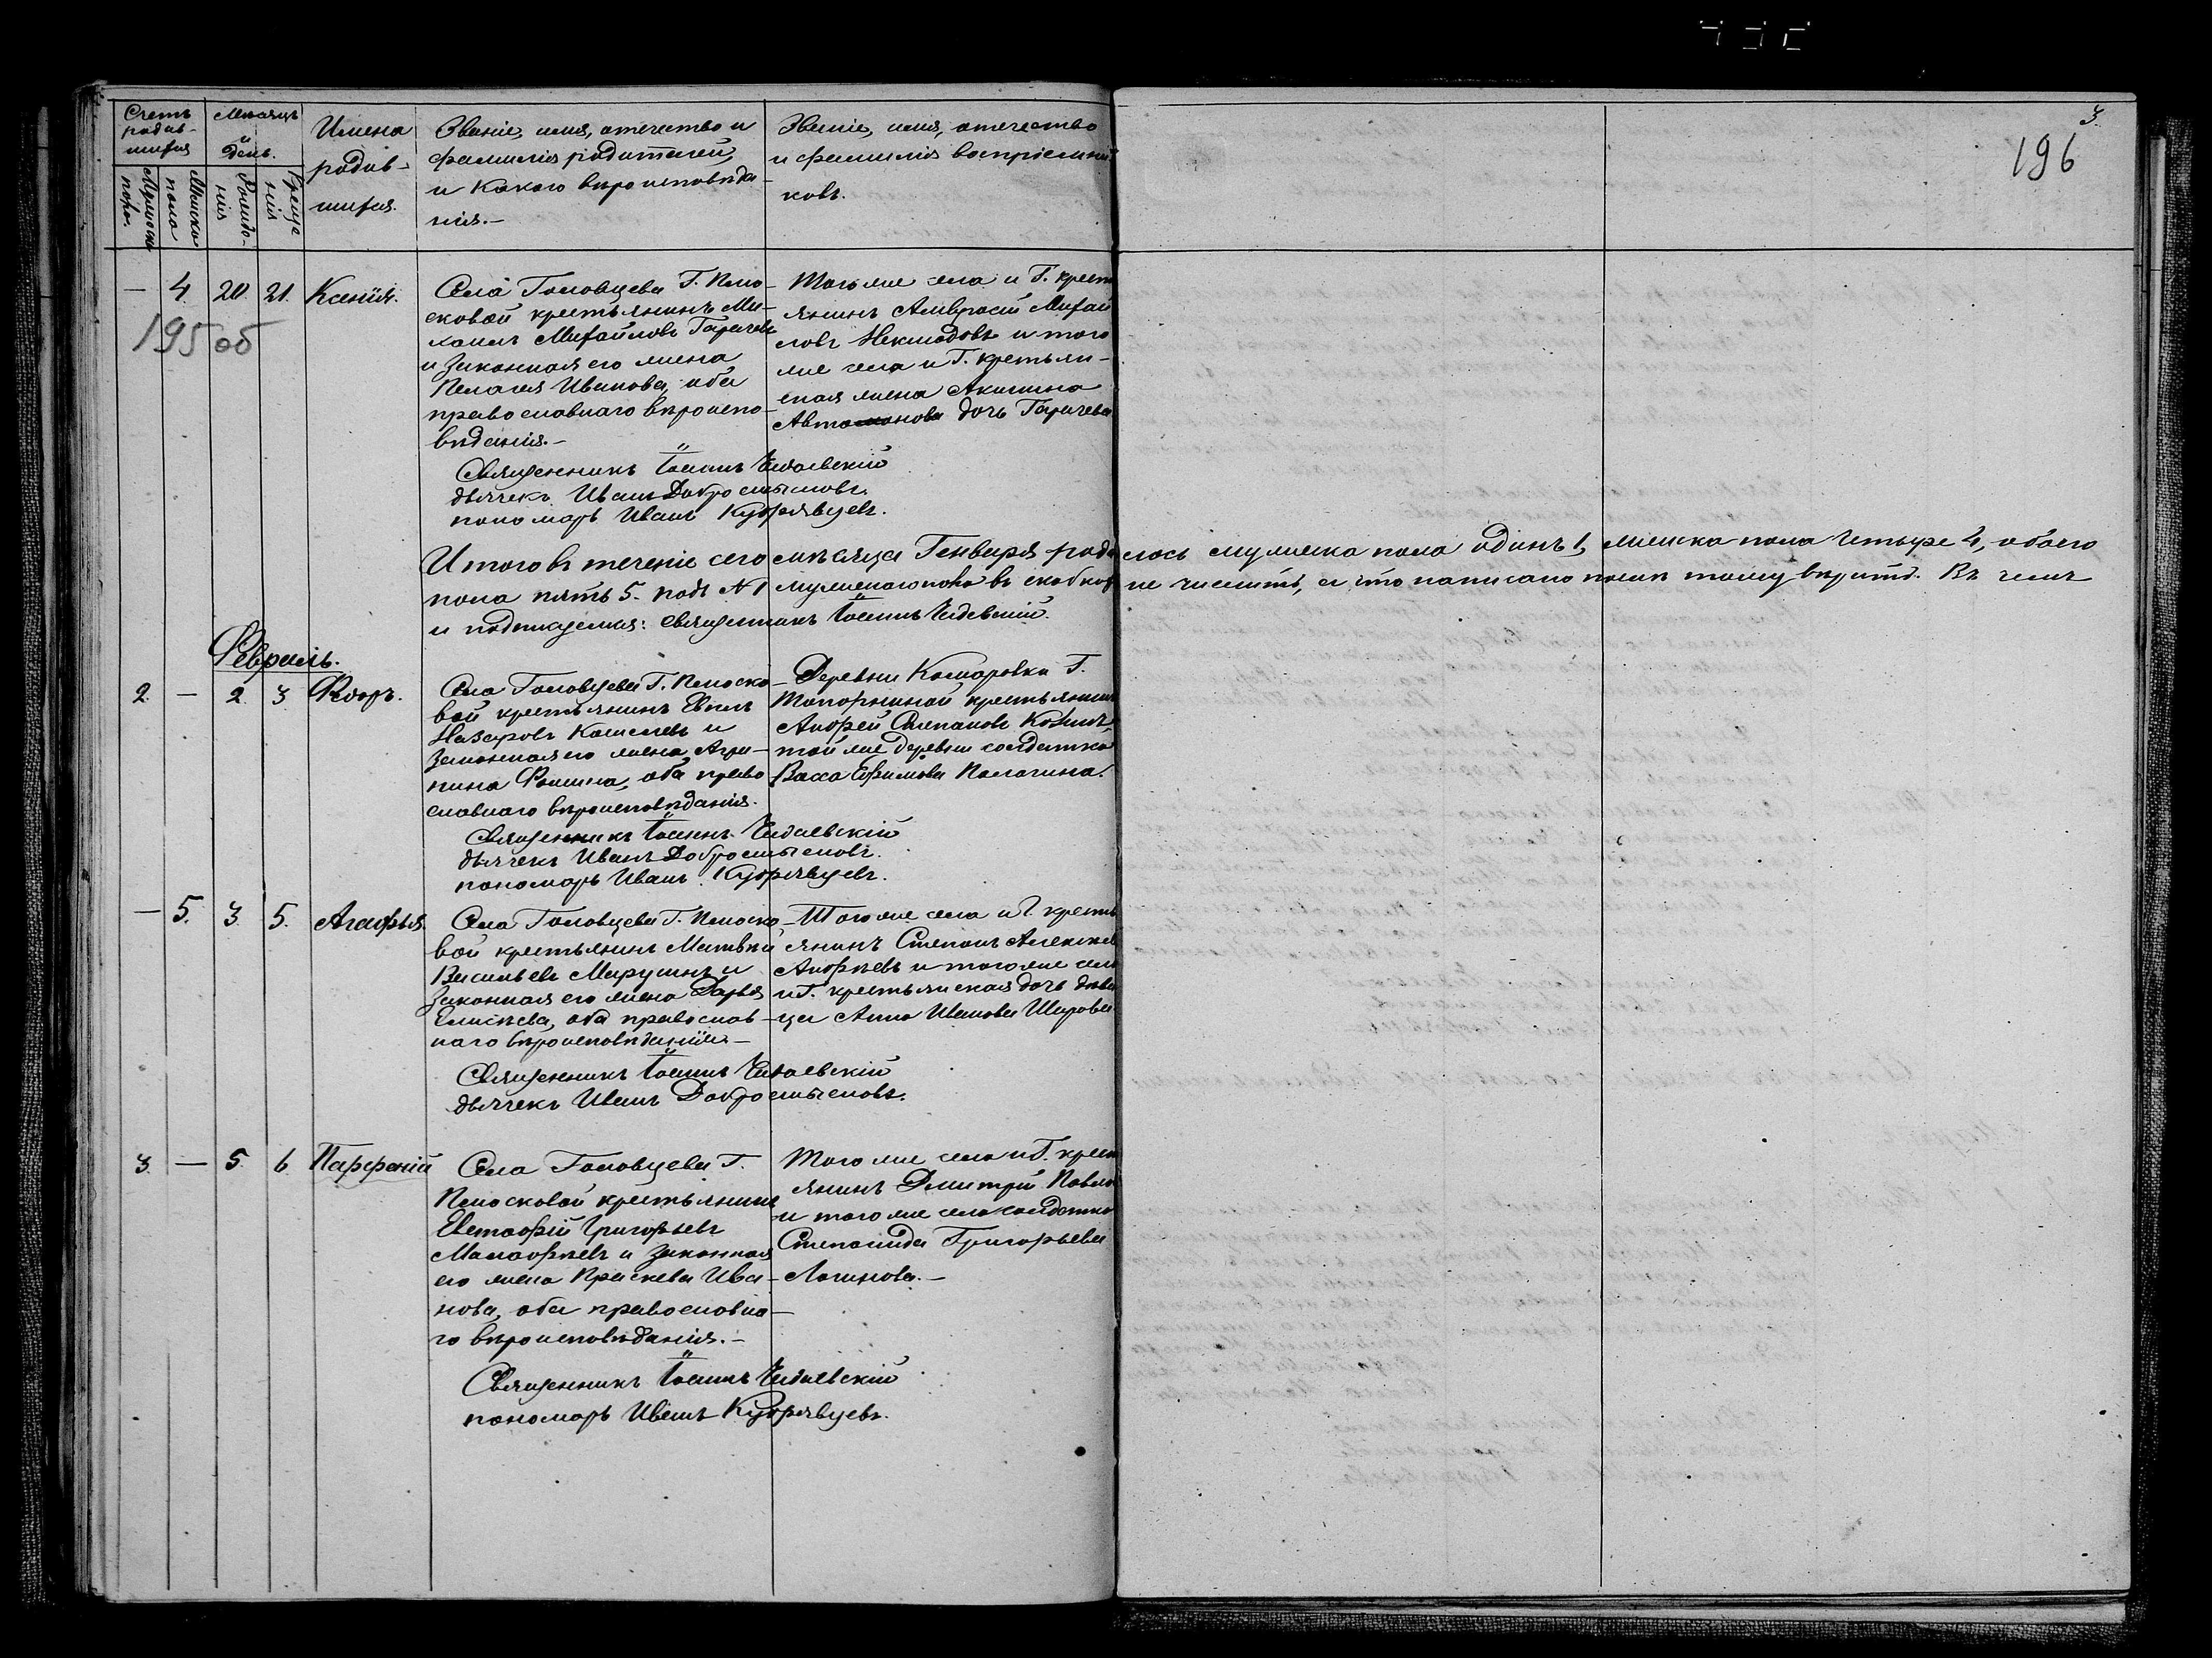 3.
196
Счетъ родив-шихся
Мѣсяцъ и день.
Имена родив-шихся.
Званіе, имя, отечество и
фамилія родителей,
и какого вѣроисповѣда-
нія.-
Званіе, имя, отечество
и фамилія воспріемни-
ковъ.
Мужеска пола.
Женска пола
Рожде-нія
Креще-нія
— 4. 20 21. Ксенія.
195 об
Села Головцева Г. Плю-
сковой крестьянинъ Ми-
хаилъ Михайловъ Гарячевъ
и законная его жена
Пелагея Иванова, оба
православнаго вѣроиспо-
вѣданія.-
Того же села и Г. крест
янинъ Амвросій Михай
ловъ и того
же села и Г. крестьян-
ская жена Акилина
Автомонова дочь Гарячева
Священникъ Іоаннъ
дьячекъ Иванъ Добросмысловъ.
пономарь Иванъ Кудрявцевъ.
Итого въ теченіе сего мѣсяца Генваря роди лось мужеска пола одинъ 1, женска пола четыре 4, обоего
пола пять 5. подъ № 1 мужескаго пола въ скобкахъ не числить, а что написано послѣ тому вѣрить. Въ чемъ
и подпишемся: священникъ Іоаннъ
Февраль.
2. — 2. 3 Ѳеодръ.
Села Головцева Г. Плюско-
вой крестьянинъ
Назаровъ Кошелевъ и
законная его жена Агри-
пина Фомина, оба право
славнаго вѣроисповѣданія.
Деревни Комаровки Г.
Топорниной крестьянинъ
Андрей Степановъ
той же деревни солдатка
Васса Ефимова
Священникъ Іоаннъ
дьячекъ Иванъ Добросмысловъ.
пономарь Иванъ Кудрявцевъ.
— 5. 3. 5. Агафья.
Села Головцева Г. Плюско-
вой крестьянинъ Матвѣй
Васильевъ Марушинъ и
законная его жена Дарья
Елисѣева, оба православ-
наго вѣроисповѣданія.-
Того же села и Г. кресть
янинъ Степанъ Алексѣев
Андрѣевъ и того же села
и Г. крестьянская дочь дѣви
ца Анна Иванова Шарова
Священникъ Іоаннъ
дьячекъ Иванъ Добросмысловъ.
3. — 5. 6. Парфеній
Села Головцева Г.
Плюсковой крестьянинъ
Евстафій Григорьевъ
и законная
его жена Праскева Ива-
нова, оба православна-
го вѣроисповѣданія.-
Того же села и Г. крест
янинъ Дмитрій Павло
и того же села солдатка
Степанида Григорьева
Логинова.-
Священникъ Іоаннъ
пономарь Иванъ Кудрявцевъ.